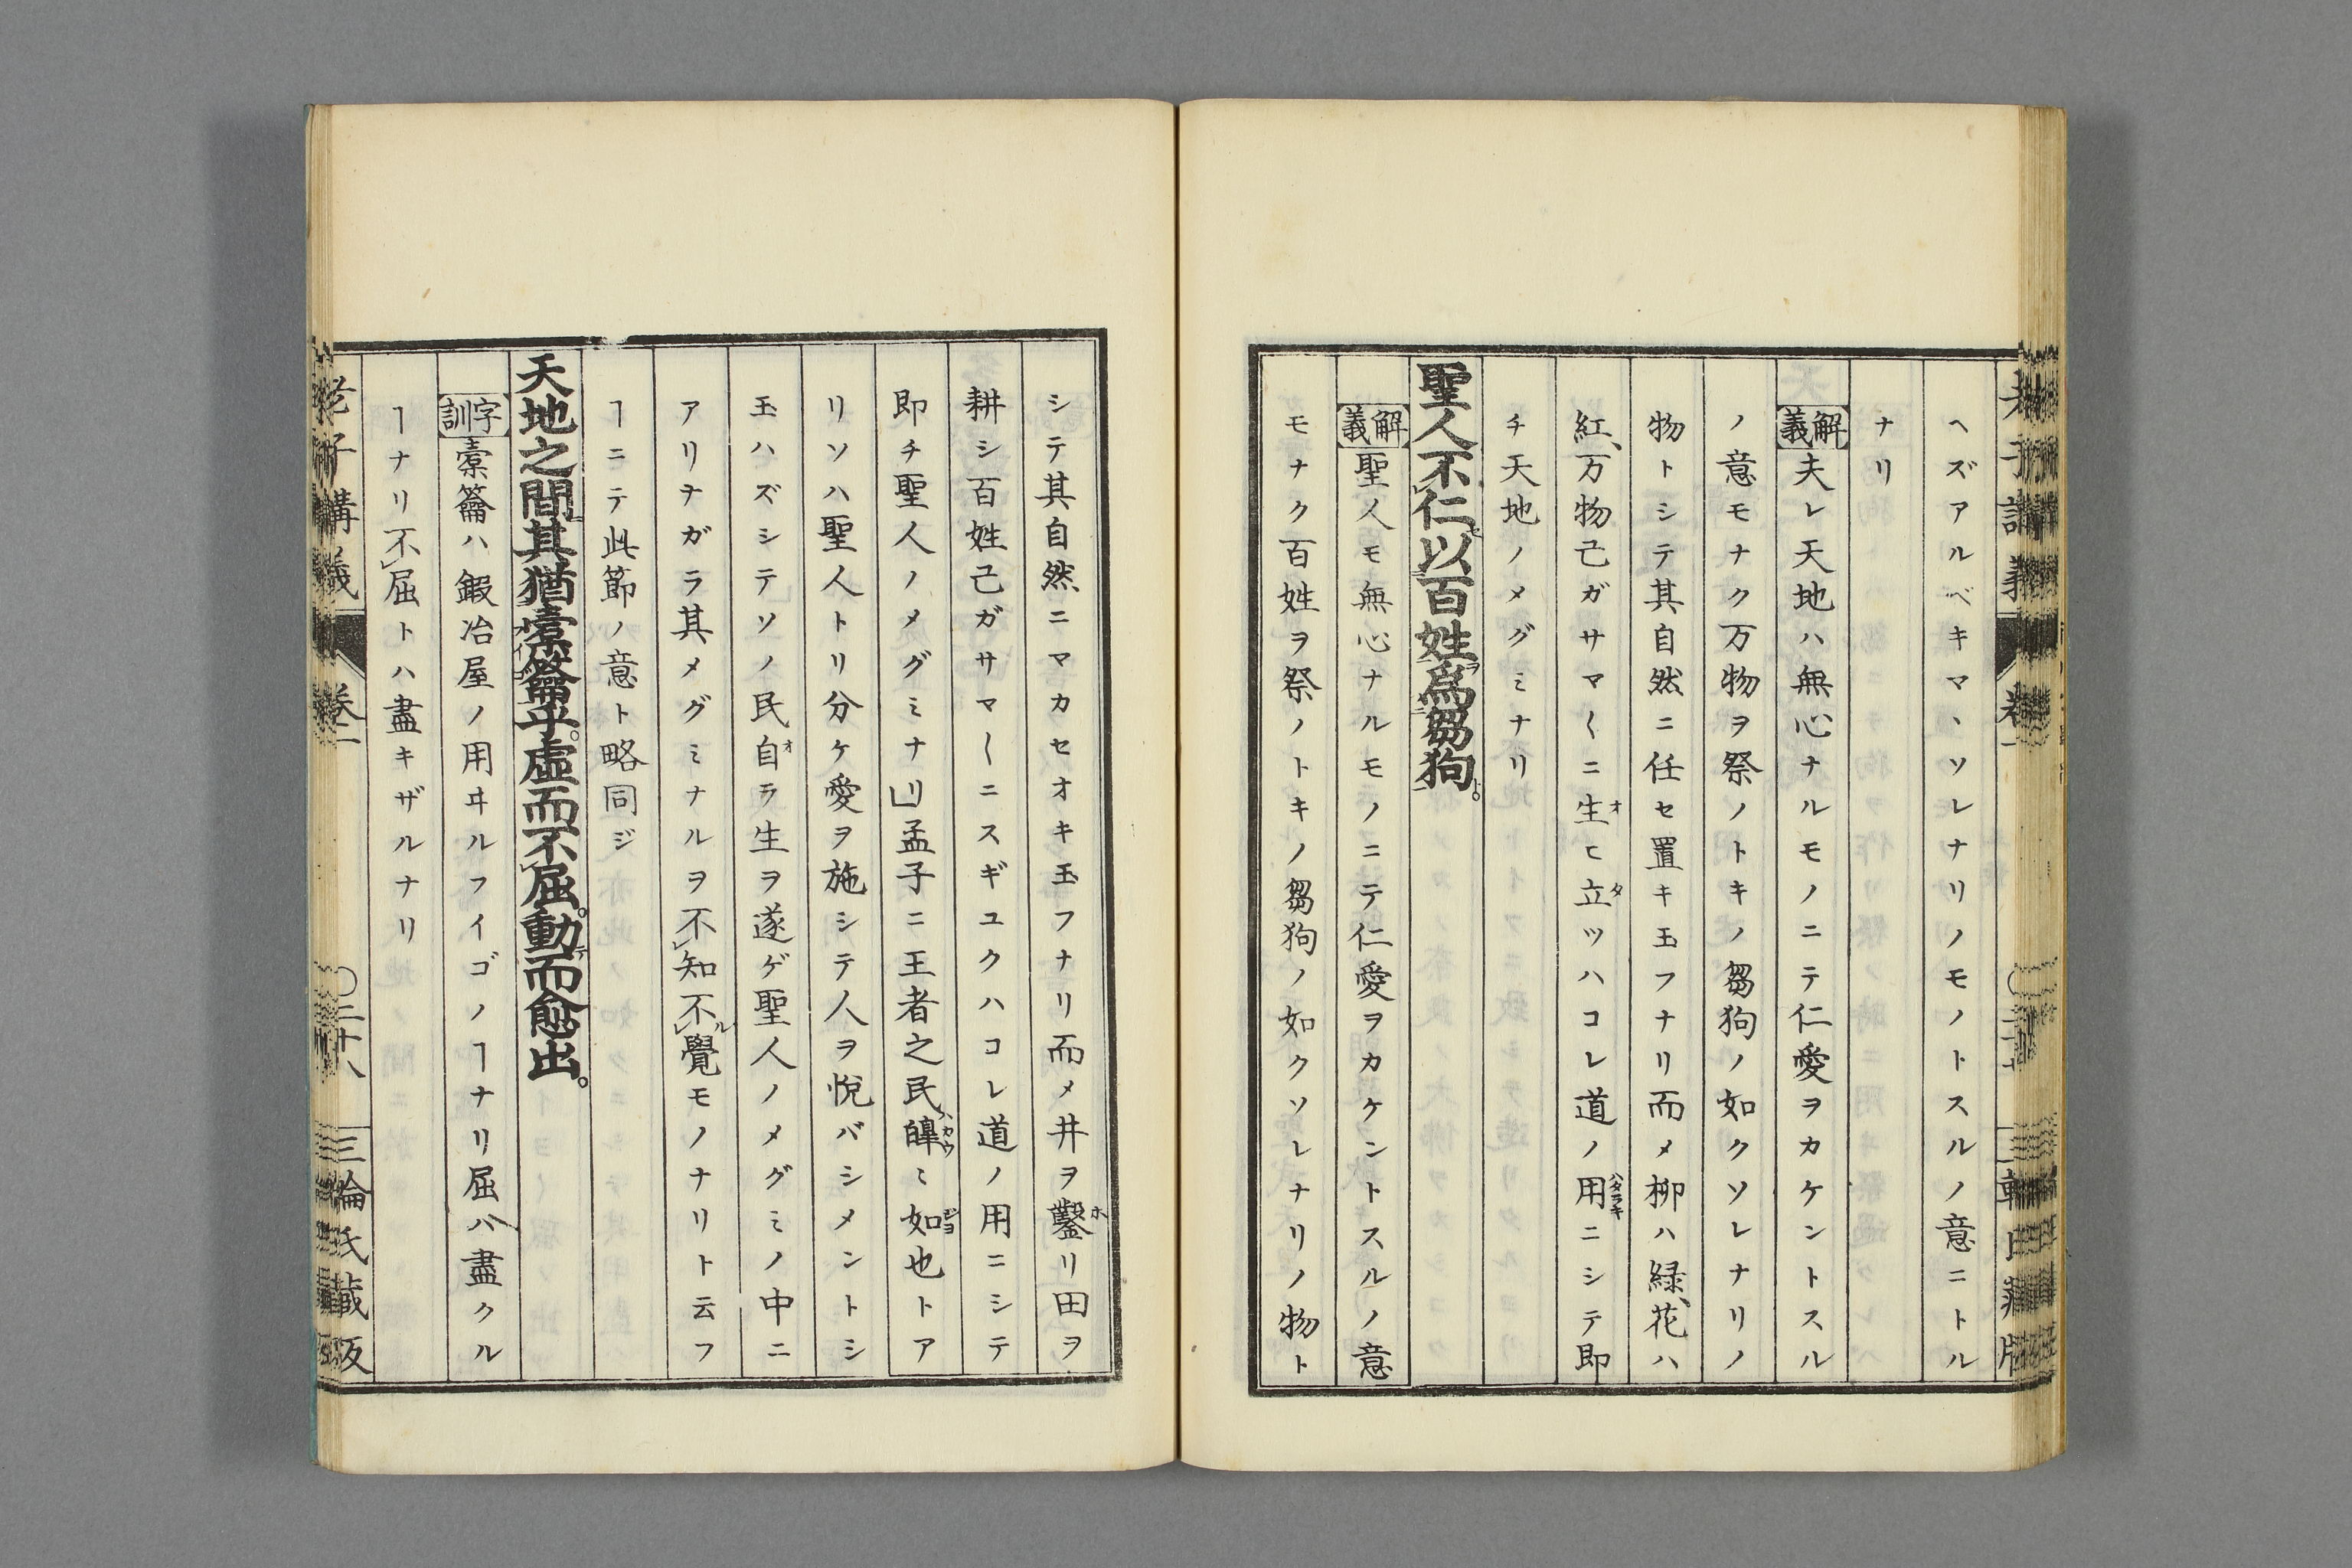 ヘズアルベキマヽソレナリノモノトスルノ意ニトル
ナリ
解義 夫レ天地ハ無心ナルモノニテ仁愛ヲカケントスル
ノ意モナク万物ヲ祭ノトキノ芻狗ノ如クソレナリノ
物トシテ其自然ニ任セ置キ玉フナリ而メ柳ハ緑、花ハ
紅、万物己ガサマ〱ニ生ヒ立ツハコレ道ノ用ニシテ即
チ天地ノメグミナリ
聖人不仁以百姓爲芻狗。
解義 聖人モ無心ナルモノニテ仁愛ヲカケントスルノ意
モナク百姓ヲ祭ノトキノ芻狗ノ如クソレナリノ物ト
シテ其自然ニマカセオキ玉フナリ而メ井ヲ鑿リ田ヲ
耕シ百姓己ガサマ〱ニスギユクハコレ道ノ用ニシテ
即チ聖人ノメグミナリ」孟子ニ王者之民皥〻如也トア
リソハ聖人トリ分ケ愛ヲ施シテ人ヲ悅バシメントシ
玉ハズシテソノ民自ラ生ヲ遂ゲ聖人ノメグミノ中ニ
アリナガラ其メグミナルヲ不知不覺モノナリト云フ
ヿニテ此節ノ意ト略同ジ
天地之間其猶橐籥乎。虛而不屈。動而愈出。
字訓 橐籥ハ鍜冶屋ノ用ヰルフイゴノヿナリ屈ハ盡クル
ヿナリ不屈トハ盡キザルナリ
老子講義 卷一 〇三十八 三輪氏藏版